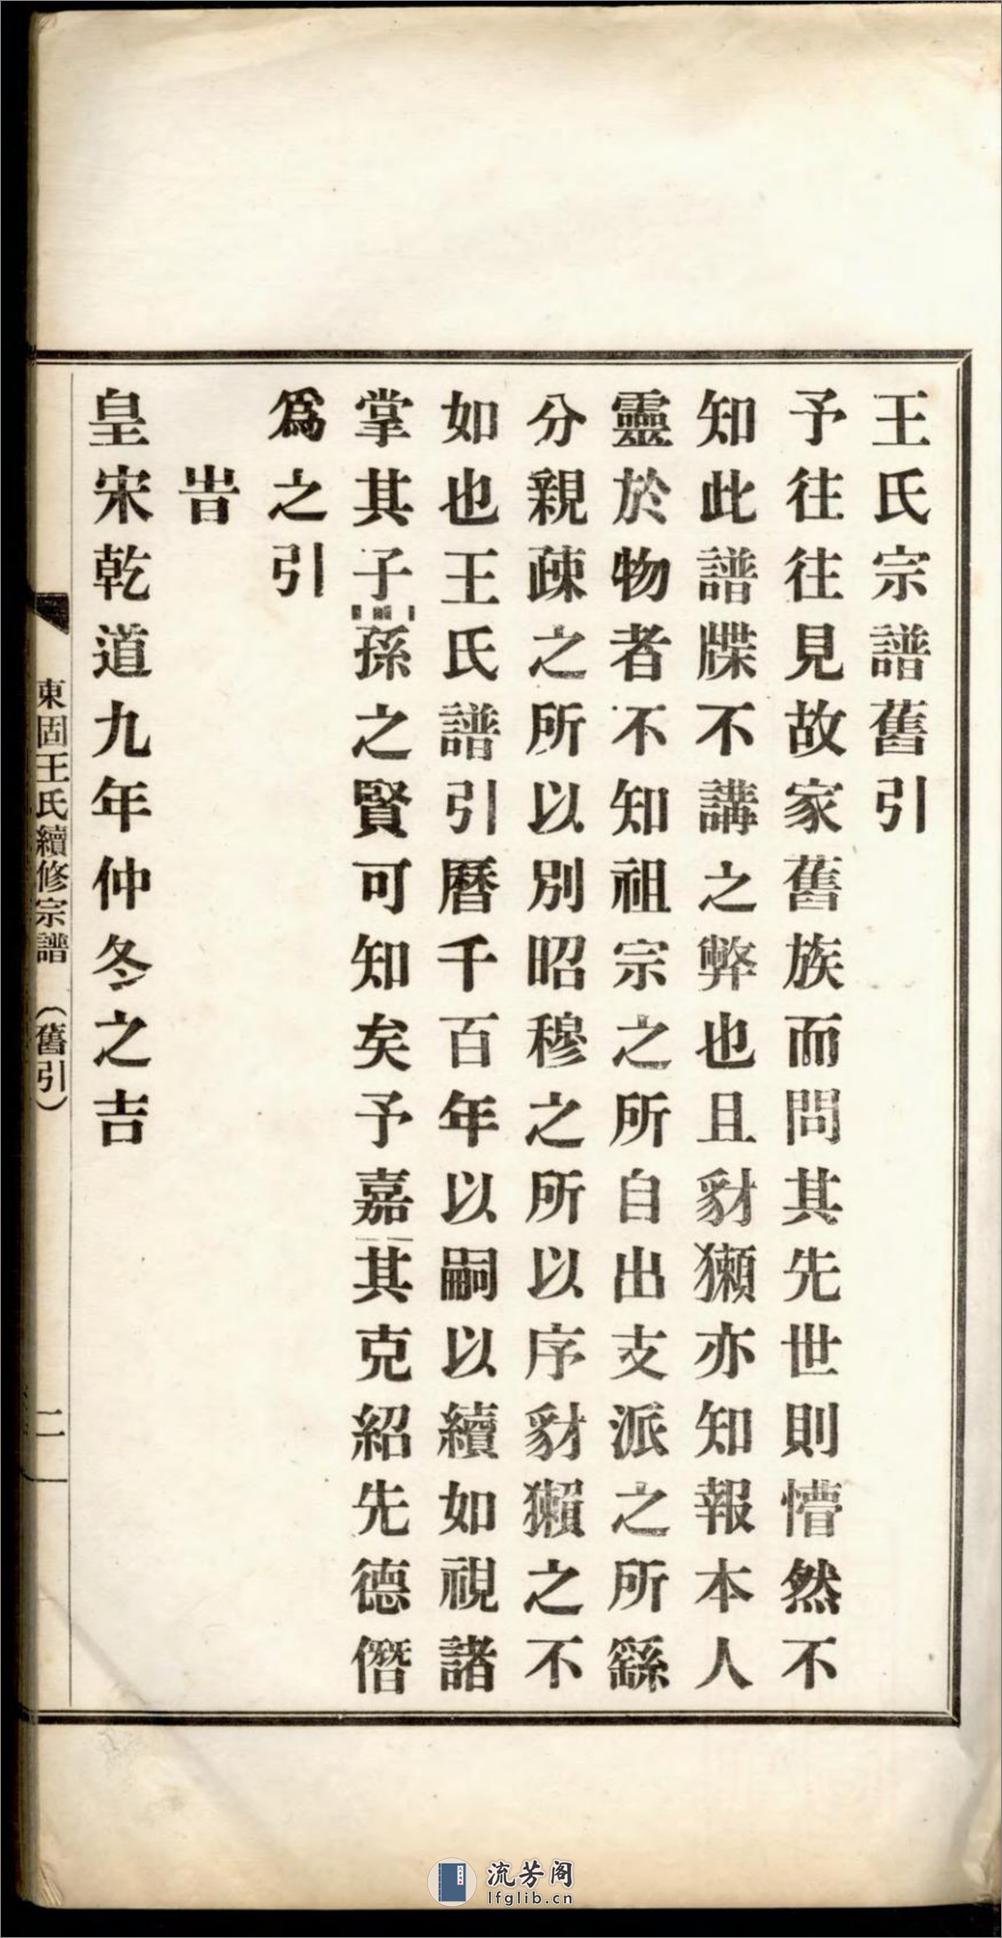 王氏宗譜舊引
予往往見故家舊族而問其先世則懵然不
知此譜牒不講之弊也且豺獺亦知報本人
靈於物者不知祖宗之所自出支派之所繇
分親疎之所以別昭穆之所以序豺獺之不
如也王氏譜引曆千百年以嗣以續如視諸
掌其子孫之賢可知矣予嘉其克紹先德僭
爲之引
旹
皇宋乾道九年仲冬之吉
東固王氏續修宗譜 (舊引) 二
流芳阁
lfglib.cn